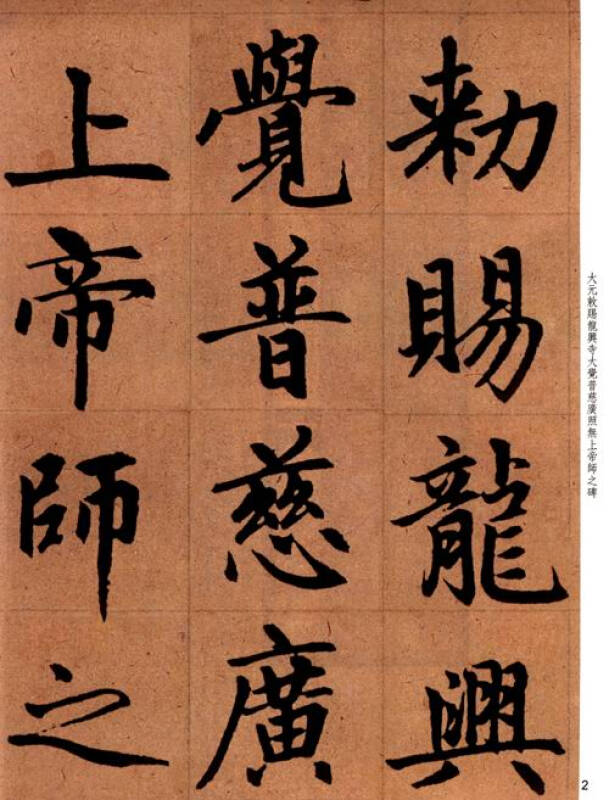 勑賜龍興
覺普慈廣
上帝師之
大元敕賜龍興寺大覺普慈廣照無上帝師之碑
2